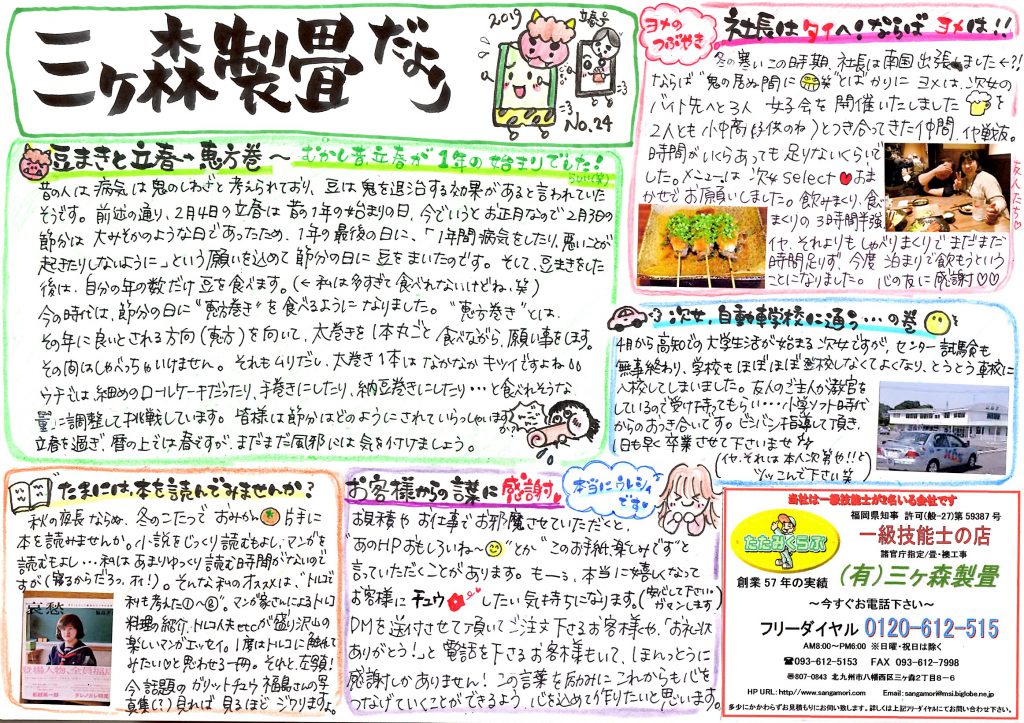 三ヶ森製畳だより
2019
立春号
No.24
豆まきと立春→恵方巻〜むかし昔、立春が1年の始まりでした!
らしい(笑)
昔の人は病気は鬼のしわざと考えられており、豆は鬼を退治する効果があると言われていた
そうです。前述の通り、2月4日の立春は昔の1年の始まりの日、今でいうとお正月なので2月3日の
節分は大みそかのような日であったため、1年の最後の日に、「1年間病気をしたり、悪いことが
起きたりしないように」という願いを込めて節分の日に豆をまいたのです。そして、豆まきをした
後は、自分の年の数だけ豆を食べます。(←私は多すぎて食べれないけどね、笑)
今の時代は、節分の日に"恵方巻き"を食べるようになりました。"恵方巻き"とは、
その年に良いとされる方向(恵方)を向いて、太巻きを1本丸ごと食べながら、願い事をします。
その間はしゃべっちゃいけません。それもムリだし、太巻き1本はなかなかキツイですよね
ウチでは、細めのロールケーキだったり、手巻きにしたり、納豆巻きにしたり…と食べれそうな
量に調整して挑戦しています。皆様は節分はどのようにされていらっしゃいますか?
立春を過ぎ、暦の上では春ですが、まだまだ風邪には気を付けましょう。
ヨメの
つぶやき
社長はタイへ!ならばヨメは!!
冬の寒いこの時期、社長は南国出張しました←?!
ならば"鬼の居ぬ間に(笑)"とばかりにヨメは、次女の
バイト先へと3人女子会を開催いたしました
2人とも小中高(子供のね)とつき合ってきた仲間、イヤ戦友。
時間がいくらあっても足りないくらいで
した。メニューは次女selectおま
かせでお願いしました。飲みまくり、食べ
まくりの3時間半強
イヤ、それよりもしゃべりまくりでまだまだ
時間足りず今度泊まりで飲もうという
ことになりました。心の友に感謝♡♡
友人たち
次女、自動車学校に通う…の巻
4月から高知での大学生活が始まる次女ですが、センター試験も
無事終わり、学校もほぼほぼ登校しなくてよくなり、とうとう車校に
入校してしまいました。友人のご主人が教官を
しているので受け持ってもらい…小学ソフト時代
からのお付き合いです。ビシバシ指導して頂き、
1日も早く卒業させて下さいませ
(イヤ、それは本人次第や!!と
ツッこんで下さい笑)
たまには、本を読んでみませんか?
秋の夜長ならぬ、冬のこたつでおみかん片手に
本を読みませんか。小説をじっくり読むもよし、マンガを
読むもよし…私はあまりゆっくり読む時間がないので
すが(寝るからだろっ、オイ!)。そんな私のオススメは、「トルコ
料理の紹介、トルコ人夫etcが盛り沢山の
楽しいマンガエッセイ。1度はトルコに触れて
みたいかもと思わせる一冊。それと、左頭!
今話題のガリットチュウ福島さんの写
真集(?)見れば見るほどジワりますよ。
哀愁
お客様からの言葉に感謝
本当にウレシイ
です
お見積やお仕事でお邪魔させていただくと、
"あのHPおもしろいね〜"とか"このお手紙、楽しみです"と
言っていただくことがあります。もーう、本当に嬉しくなって
お客様にチュウしたい気持ちになります。(安心して下さい。
ガマンします)
DMを送付させて頂いてご注文下さるお客様や、「お礼状
ありがとう!」と電話を下さるお客様もいて、ほんっとうに
感謝しかありません!この言葉を励みにこれからも心を
つなげていくことができるよう、心を込めて作りたいと思います。
当社は一級技能士が2名いる会社です
たたみくらぶ
創業57年の実績
福岡県知事 許可(般-27)第59387号
一級技能士の店
諸官庁指定/畳・襖工事
(有)三ヶ森製畳
〜今すぐお電話下さい〜
フリーダイヤル 0120-612-515
AM8:00〜PM6:00 ※日曜・祝日は除く
☎093-612-5153 FAX 093-612-7998
〒807-0843 北九州市八幡西区三ヶ森2丁目8−6
HP URL:http://www.sangamori.com Email:sangamori@msi.biglobe.ne.jp
多少にかかわらずお見積もりにお伺い致します。詳しくは上記フリーダイヤルにてお問い合わせ下さい。